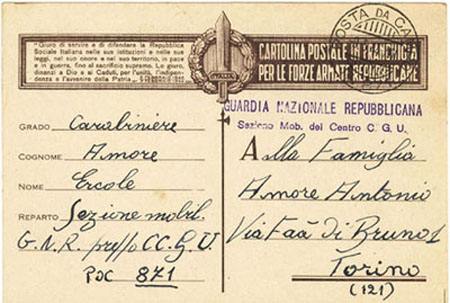 "Giuro di servire e di difendere la Repubblica
Sociale Italiana nelle sue istituzioni e nelle sue
leggi, nel suo onore e nel suo territorio, in pace
e in guerra, fino al sacrificio supremo. Le giuro,
dinanzi a Dio e ai Caduti, per l'unità, l'indipen-
denza e l'avvenire della Patria
CARTOLINA POSTALE IN FRANCHIGIA
PER LE FORZE ARMATE REPUBBLICANE
POSTA DA CA
GUARDIA NAZIONALE REPUBBLICANA
Sezione Mob. del Centro C. G. U.
GRADO Carabiniere
COGNOME Amore
NOME Ercole
REPARTO Sezione mobil.
G.N.R. presso CC.G.U.
PdC 871
Alla Famiglia
Amore Antonio
Via Faà di Bruno 1
Torino
(121)